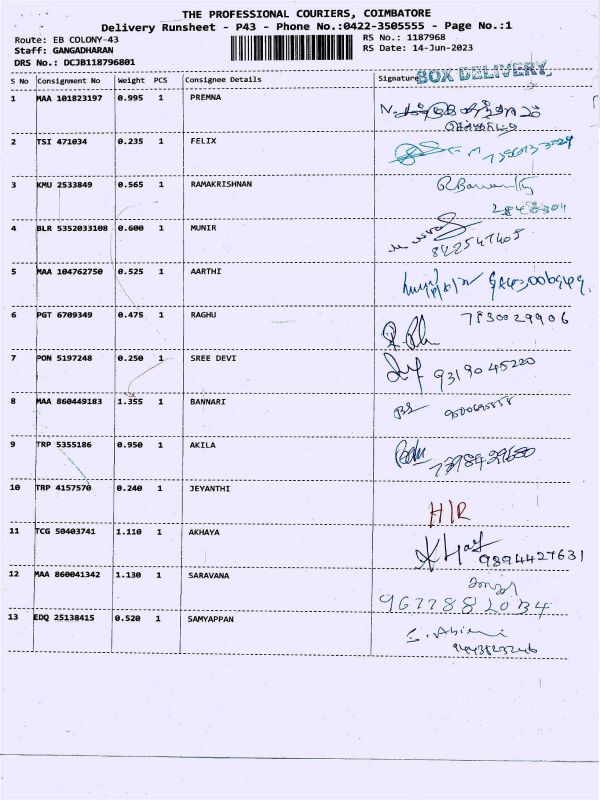 THE PROFESSIONAL COURIERS, COIMBATORE
Delivery Runsheet - P43 - Phone No.:0422-3505555 - Page No.:1
Route: EB COLONY-43 RS No.: 1187968
Staff: GANGADHARAN RS Date: 14-Jun-2023
DRS No.: DCJB118796801
S No Consignment No Weight PCS Consignee Details Signature BOX DELIVERY
1 MAA 101823197 0.995 1 PREMNA
2 TSI 471034 0.235 1 FELIX
3 KMU 2533849 0.565 1 RAMAKRISHNAN
4 BLR 5352033108 0.600 1 MUNIR
842547405
5 MAA 104762750 0.525 1 AARTHI
6 PGT 6709349 0.475 1 RAGHU 7830029906
7 PON 5197248 0.250 1 SREE DEVI
9319045220
8 MAA 860449183 1.355 1 BANNARI
9 TRP 5355186 0.950 1 AKILA
10 TRP 4157570 0.240 1 JEYANTHI
H/R
11 TCG 50403741 1.110 1 AKHAYA
9894427631
12 MAA 860041342 1.130 1 SARAVANA
13 EDQ 25138415 0.520 1 SAMYAPPAN